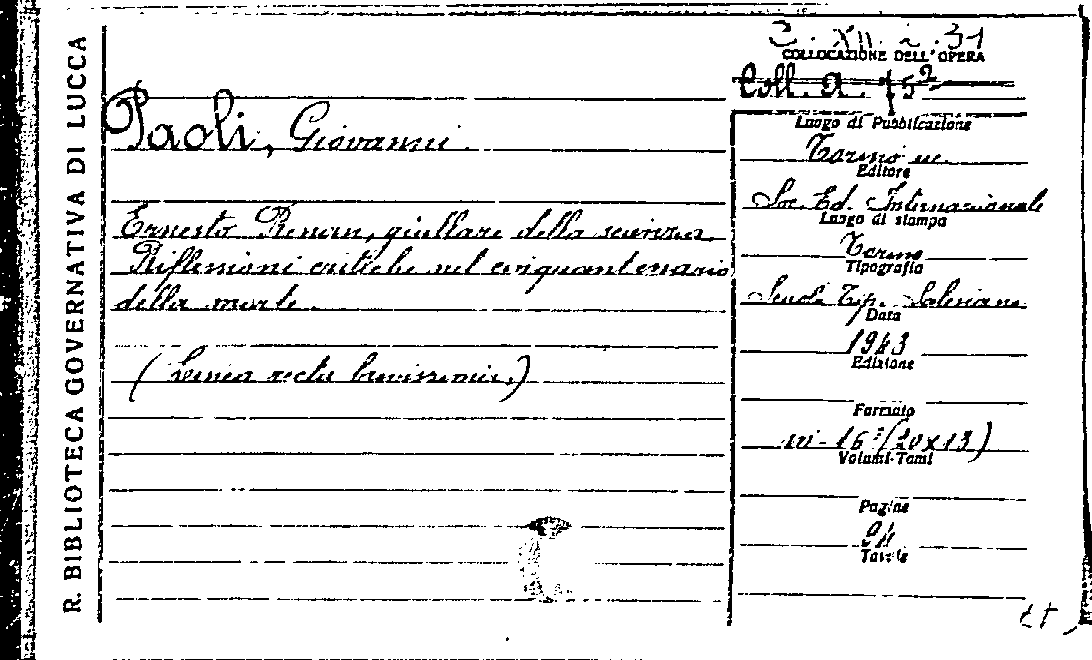 R. BIBLIOTECA GOVERNATIVA DI LUCCA
COLLOCAZIONE DELL'OPERA
Coll. a. 75²
Paoli, Giovanni.
Ernesto Renan, giullare della scienza.
Riflessioni critiche nel cinquantenario
della morte.
(Linea recta brevissima.)
Luogo di Pubblicazione
Torino
Editore
Soc. Ed. Internazionale
Luogo di stampa
Torino
Tipografia
Scuola Tip. Salesiana
Data
1943
Edizione
Formato
in-16° (20x13)
Volumi-Tomi
Pagine
94
Tavole